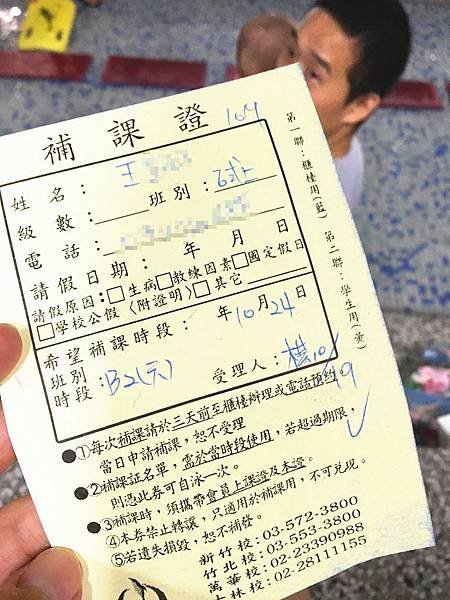 補課證 104
姓名：王
級數：　班別：
電話：
請假日期：　年　月　日
請假原因：□生病□教練因素□國定假日
□學校公假〈附證明〉□其它
希望補課時段：　年10月24日
班別
時段：B2(六)　受理人：
10/19
●①每次補課請於三天前至櫃檯辦理或電話預約，
當日申請補課，恕不受理
●②補課証名單，需於當時段使用，若超過期限，
則憑此券可自泳一次。
●③補課時，須攜帶會員上課證及本證。
④本券禁止轉讓，只適用於補課用，不可兌現。
⑤若遺失損毀，恕不補發。
新竹校：03-572-3800
竹北校：03-553-3800
萬華校：02-23390988
士林校：02-28111155
第一聯：櫃檯用(藍)　第二聯：學生用(黃)